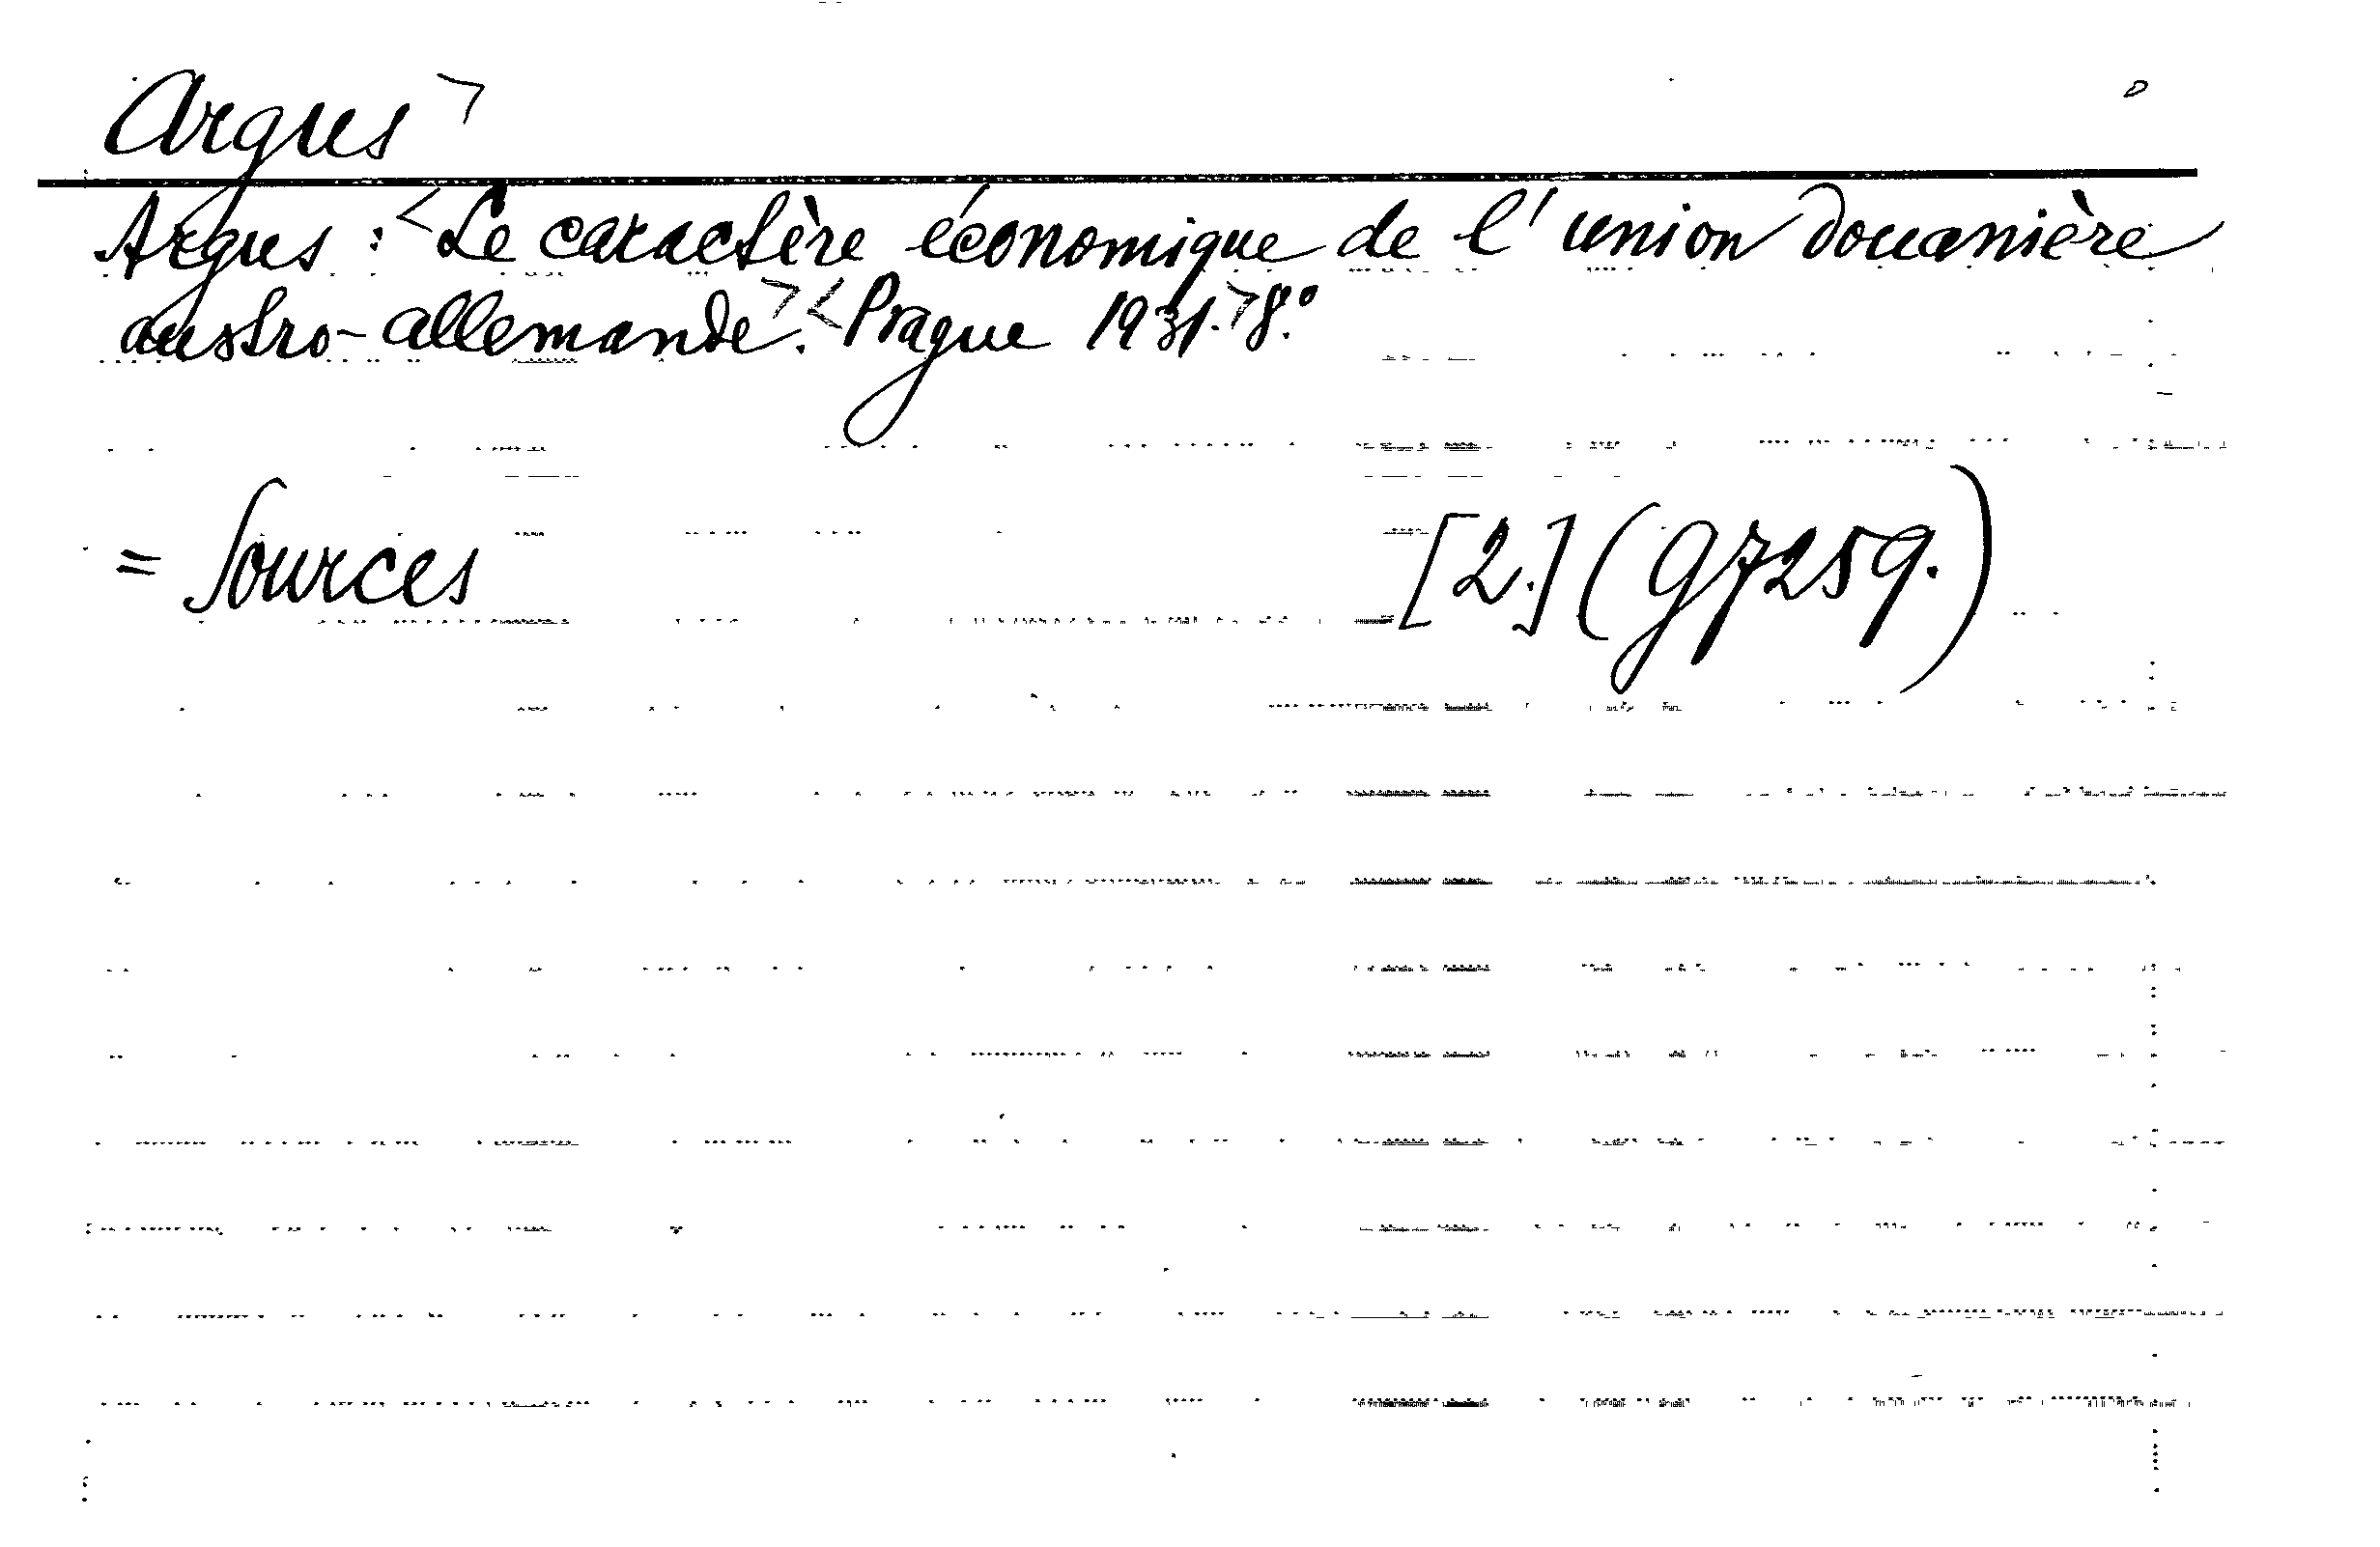 Argus>
Argus : <Le caractère économique de l'union douanière
austro-allemande>. <Prague 1931.> 8.°
= Sources [2.] (97259.)